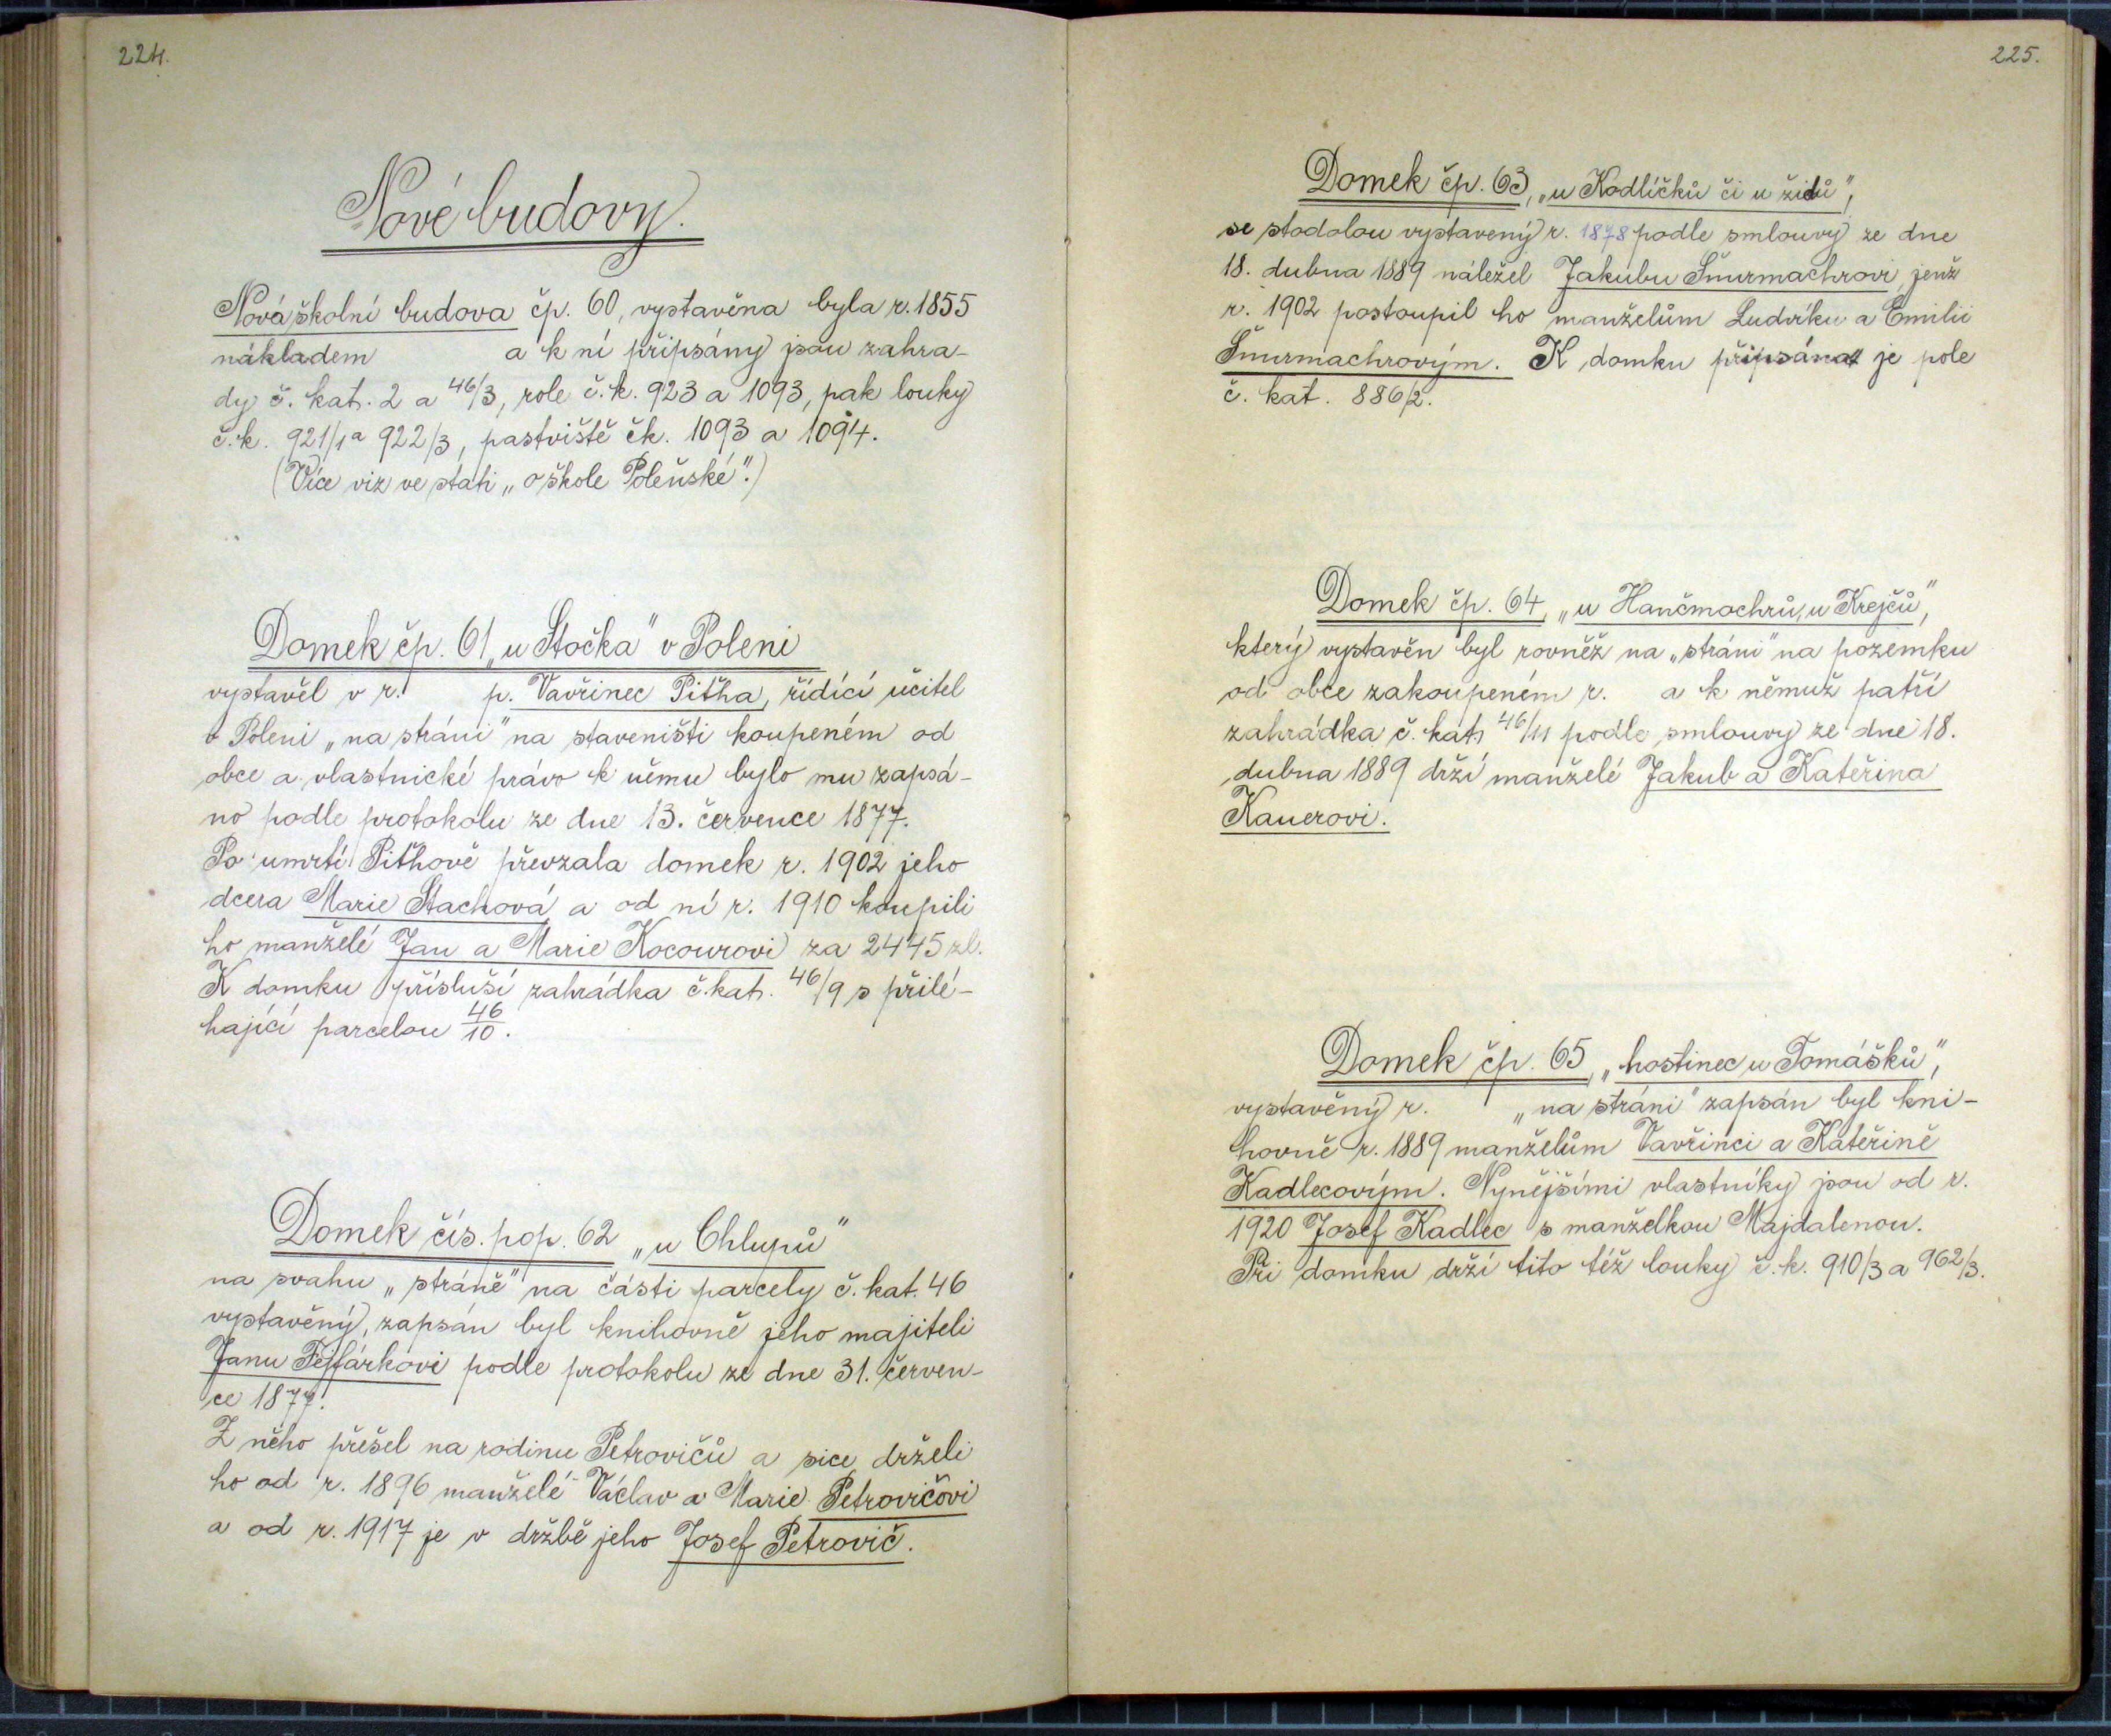 224.
Nové budovy.
Nová školní budova čp. 60, vystavěna byla r. 1855
nákladem a k ní připsány jsou zahra-
dy č. kat. 2 a 46/3, role č. k. 923 a 1093, pak louky
č. k. 921/1 a 922/3, pastviště čk. 1093 a 1094.
(Více viz ve stati „o škole Poleňské“.)
Domek čp. 61 „u Stočka“ v Poleni
vystavěl v r. p. Vavřinec Pitha, řídící učitel
v Poleni „na stráni“ na staveništi koupeném od
obce a vlastnické právo k němu bylo mu zapsá-
no podle protokolu ze dne 13. července 1877.
Po umrtí Pithově převzala domek r. 1902 jeho
dcera Marie Stachová a od ní r. 1910 koupili
ho manželé Jan a Marie Kocourovi za 2445 zl.
K domku přísluší zahrádka č. kat. 46/9 s přilé-
hající parcelou 46/10.
Domek čís. pop. 62 „u Chlupů“
na svahu „stráně“ na části parcely č. kat. 46
vystavěný, zapsán byl knihovně jeho majiteli
Janu Fejfárkovi podle protokolu ze dne 31. červen-
ce 1877.
Z něho přešel na rodinu Petrovičů a sice drželi
ho od r. 1896 manželé Václav a Marie Petrovičovi
a od r. 1917 je v držbě jeho Josef Petrovič.
225.
Domek čp. 63, „u Kodlíčků či u židů“,
se stodolou vystavený r. 1878 podle smlouvy ze dne
18. dubna 1889 náležel Jakubu Šnurmachrovi, jenž
r. 1902 postoupil ho manželům Ludvíku a Emilii
Šnurmachrovým. K domku připsána je pole
č. kat. 886/2.
Domek čp. 64, „u Hančmochrů, u Krejčů“,
který vystavěn byl rovněž na „stráni“ na pozemku
od obce zakoupeném r. a k němuž patří
zahrádka č. kat. 46/11 podle smlouvy ze dne 18.
dubna 1889 drží manželé Jakub a Kateřina
Kauerovi.
Domek čp. 65, „hostinec u Tomášků“,
vystavěný r. „na stráni“ zapsán byl kni-
hovně r. 1889 manželům Vavřinci a Kateřině
Kadlecovým. Nynějšími vlastníky jsou od r.
1920 Josef Kadlec s manželkou Majdalenou.
Při domku drží tito též louky č. k. 910/3 a 962/3.